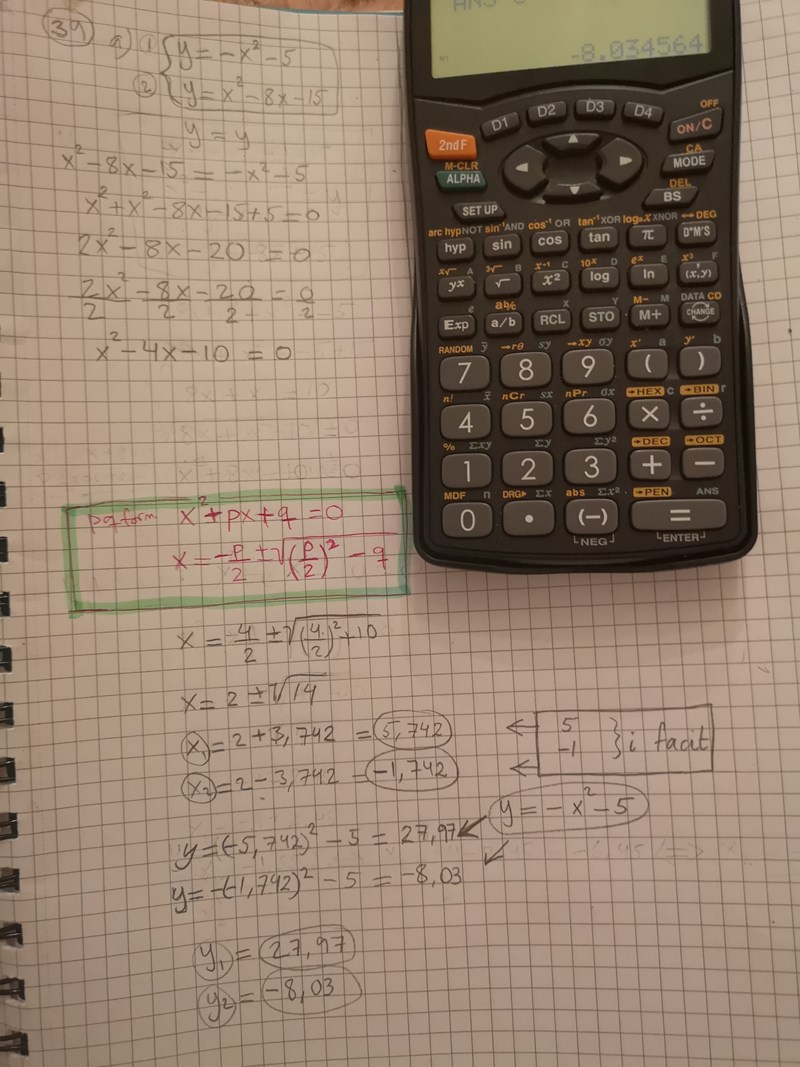 39) a) ① { y = -x² - 5
② { y = x² - 8x - 15
y = y
x² - 8x - 15 = -x² - 5
x² + x² - 8x - 15 + 5 = 0
2x² - 8x - 20 = 0
2x²/2 - 8x/2 - 20/2 = 0/2
x² - 4x - 10 = 0
pq form x² + px + q = 0
x = -p/2 ± √((p/2)² - q)
x = 4/2 ± √((4/2)² + 10)
x = 2 ± √14
x₁ = 2 + 3,742 = 5,742
x₂ = 2 - 3,742 = -1,742
← 5
← -1 } i facit
y = -x² - 5
y = (-5,742)² - 5 = 27,97
y = -(-1,742)² - 5 = -8,03
y₁ = 27,97
y₂ = -8,03
-8.034564
D1 D2 D3 D4
OFF
2ndF ON/C
M-CLR CA
ALPHA MODE
DEL
SET UP BS
arc hyp NOT sin⁻¹ AND cos⁻¹ OR tan⁻¹ XOR log₂x XNOR ↔DEG
hyp sin cos tan π D°M'S
x√ A ³√ B x⁻¹ C 10ˣ D eˣ E x³ F
yx √ x² log ln (x,y)
e ab/c X Y M- M DATA CD
Exp a/b RCL STO M+ CHANGE
RANDOM ȳ →rθ sy →xy σy x' a y' b
7 8 9 ( )
n! x̄ nCr sx nPr σx →HEX c →BIN r
4 5 6 × ÷
% Σxy Σy Σy² →DEC →OCT
1 2 3 + −
MDF n DRG▸ Σx abs Σx² →PEN ANS
0 • (−) =
NEG ENTER